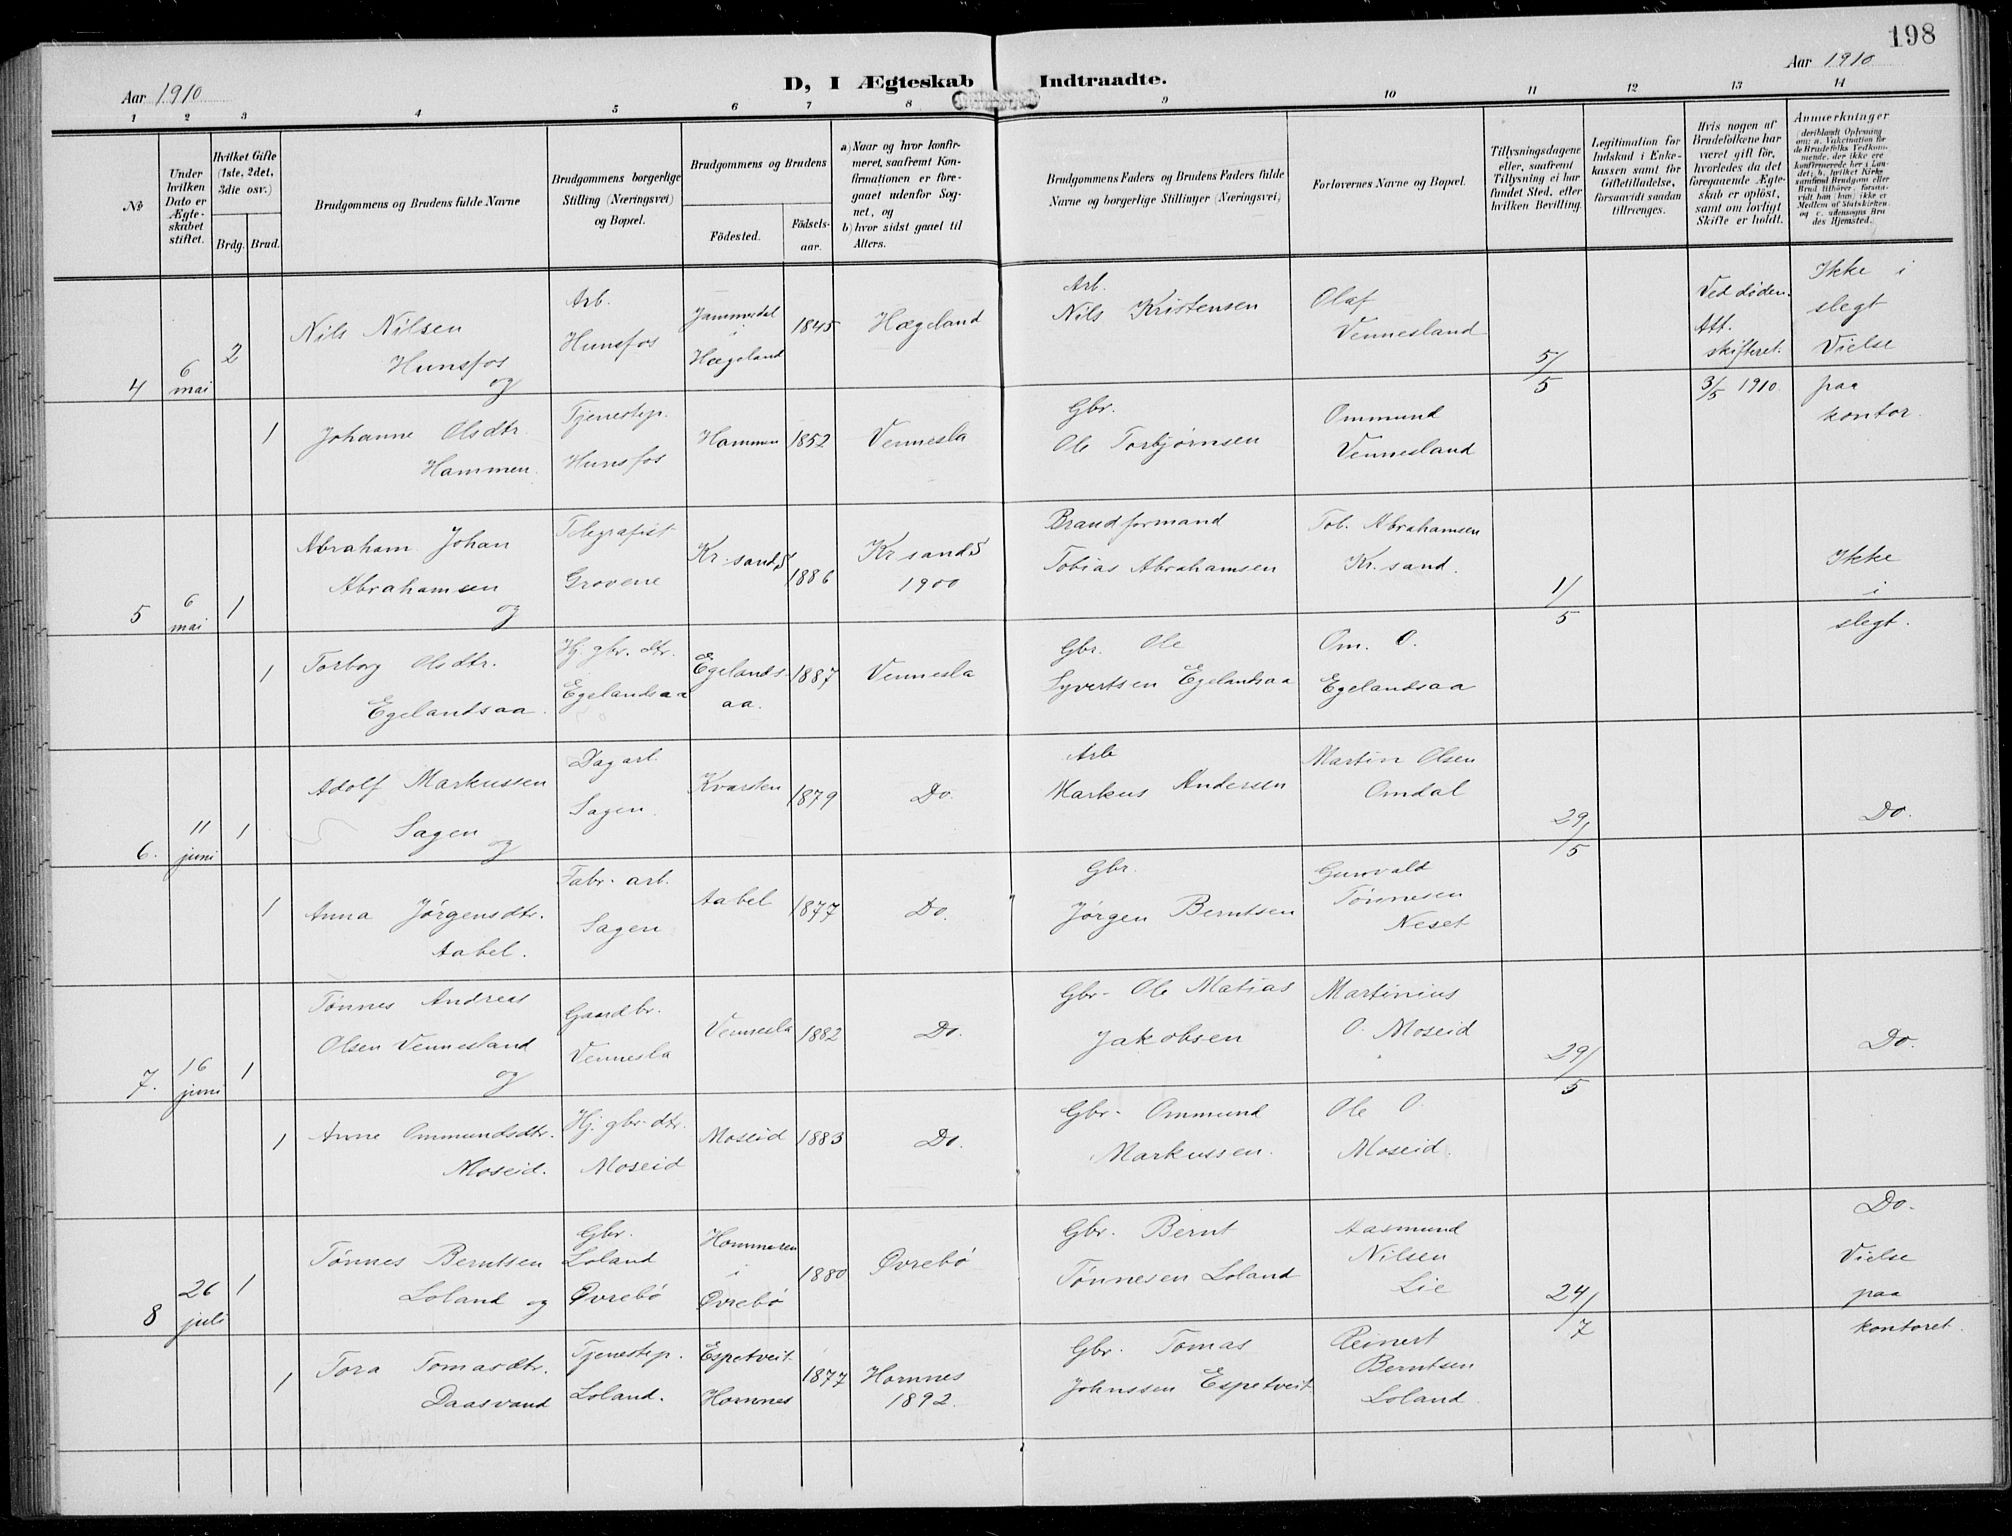 198
Aar 1910
D, I Ægteskab Indtraadte.
Aar 1910
1 2 3 4 5 6 7 8 9 10 11 12 13 14
№
Under hvilken Dato er Ægteskabet stiftet.
Hvilket Gifte (1ste, 2det, 3die osv.)
Brdg. Brud.
Brudgommens og Brudens fulde Navne
Brudgommens borgerlige Stilling (Næringsvei) og Bopæl.
Brudgommens og Brudens
Födested. Födsels-aar.
a) Naar og hvor konfirmeret, saafremt Konfirmationen er foregaaet udenfor Sognet, og
b) hvor sidst gaaet til Alters.
Brudgommens Faders og Brudens Faders fulde Navne og borgerlige Stillinger (Næringsvei)
Forlovernes Navne og Bopæl.
Tillysningsdagene eller, saafremt Tillysning ei har fundet Sted, efter hvilken Bevilling.
Legitimation for Indskud i Enkekassen samt for Giftetilladelse, forsaavidt saadan tiltrænges.
Hvis nogen af Brudefolkene har været gift för, hvorledes da det foregaaende Ægteskab er oplöst, samt om lovligt Skifte er holdt.
Anmerkninger
(deriblandt Oplysning om: a. Vakcination for de Brudefolks Vedkommende, der ikke ere konfirmerede her i Landet; b. hvilket Kirkesamfund Brudgom eller Brud tilhörer, forsaavidt han (hun) ikke er Medlem af Statskirken, og c. udensogns Brudes Hjemsted.)
4
6 mai
2
Nils Nilsen
Hunsfos
og
Arb.
Hunsfos
i
Hægeland
1845
Hægeland
Arb.
Nils Kristensen
Olaf
Vennesland
5/5
Ved døden.
Att.
skifteret.
3/5 1910.
Ikke i
slegt
Vielse
paa
kontor.
1
Johanne Olsdtr.
Hammen.
Tjenestep.
Hunsfos
Hammen
1852
Vennesla
Gbr.
Ole Torbjørnsen
Ommund
Vennesland
5
6 mai
1
Abraham Johan
Abrahamsen
og
Telegrafist
Grovene
Kr.sand S
1886
Kr sand S
1900
Brandformand
Tobias Abrahamsen
Tob. Abrahamsen
Kr. sand.
1/5
Ikke
i
slegt.
1
Torborg Olsdtr.
Egelandsaa.
Hj. gbr. dtr.
Egelandsaa
Egelands-
aa.
1887
Vennesla
Gbr. Ole
Syvertsen Egelandsaa
Om. O.
Egelandsaa
6.
11 juni
1
Adolf Markussen
Sagen
og
Dagarb.
Sagen.
Kvarsten
1879
Do.
Arb
Markus Andersen
Martin Olsen
Omdal
29/5
Do.
1
Anna Jørgensdtr.
Aabel.
Fabr- arb.
Sagen
Aabel
1877
Do.
Gbr.
Jørgen Berntsen
Gunvald
Tønnesen
Neset
7.
16 juni
1
Tønnes Andreas
Olsen Vennesland
og
Gaardbr.
Vennesla
Vennesla
1882
Do.
Gbr- Ole Matias
Jakobsen
Martinius
O. Moseid
29/5
Do.
1
Anne Ommundsdtr.
Moseid.
Hj. gbr-dtr.
Moseid
Moseid
1883
Do.
Gbr- Ommund
Markussen.
Ole O.
Moseid.
8
26 juli
1
Tønnes Berntsen
Loland og
Gbr.
Loland
Øvrebø
Hommeren
i
Øvrebø
1880
Øvrebø
Gbr. Bernt
Tønnesen Loland
Aasmund
Nilsen
Lie
24/7
Do.
Vielse
paa
kontoret.
1
Tora Tomasdtr.
Daasvand
Tjenestep.
Loland.
Espetveit
Hornnes
1877
Hornnes
1892.
Gbr. Tomas
Johnssen Espetveit
Reinert
Berntsen
Loland.